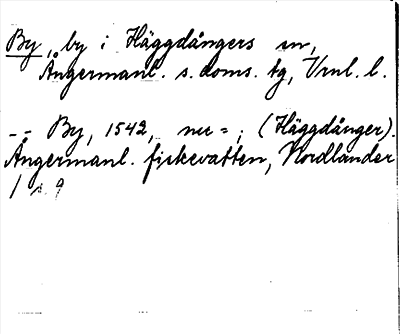 By, by i Häggdångers sn,
Ångermanl. s. doms. tg, Vrnl. l.
-- By, 1542, nu =; (Häggdånger).
Ångermanl. fiskevatten, Nordlander
1 s. 9